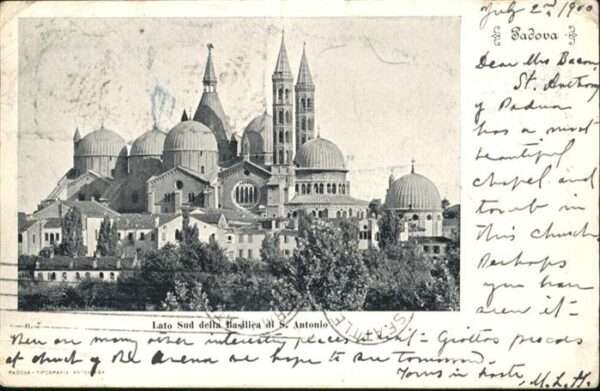 July 2nd 1900
Padova
Dear Mrs Bacon,
St. Anthony
of Padua
has a most
beautiful
chapel and
tomb in
this church.
Perhaps
you have
seen it-
Lato Sud della Basilica di S. Antonio
There are many other interesting places to visit - Giottos
at church of the Arena we hope to see tomorrow.
PADOVA - TIPOGRAFIA
Yours in haste, M.L.H.